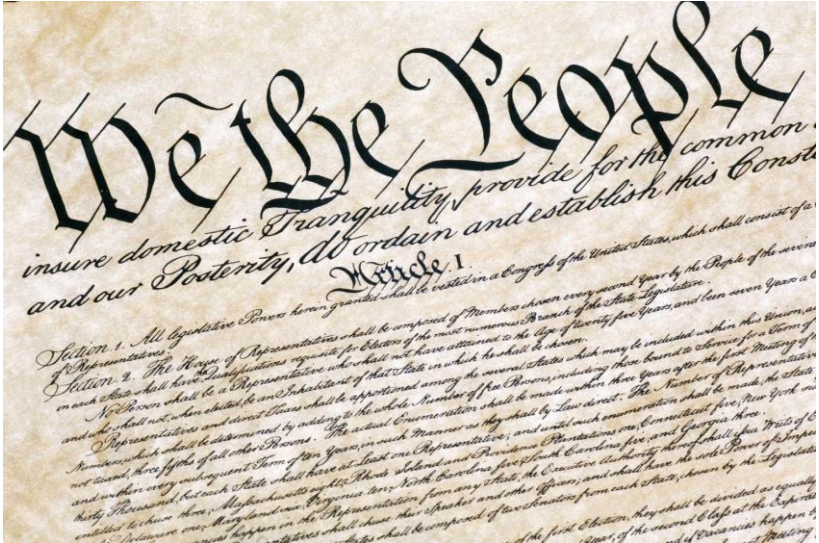 We the People
insure domestic Tranquility, provide for the common
and our Posterity, do ordain and establish this Const
Article. I
Section. 1. All legislative Powers herein granted shall be vested in a Congress of the United States, which shall consist of a
of Representatives.
Section. 2. The House of Representatives shall be composed of Members chosen every second Year by the People of the several
in each State shall have the Qualifications requisite for Electors of the most numerous Branch of the State Legislature.
No Person shall be a Representative who shall not have attained to the Age of twenty five Years, and been seven Years a C
and who shall not, when elected, be an Inhabitant of that State in which he shall be chosen.
Representatives and direct Taxes shall be apportioned among the several States which may be included within this Union, ac
Numbers, which shall be determined by adding to the whole Number of free Persons, including those bound to Service for a Term of
not taxed, three fifths of all other Persons. The actual Enumeration shall be made within three Years after the first Meeting of th
and within every subsequent Term of ten Years, in such Manner as they shall by Law direct. The Number of Representatives
thirty Thousand, but each State shall have at Least one Representative; and until such enumeration shall be made, the State
entitled to chuse three, Massachusetts eight, Rhode Island and Providence Plantations one, Connecticut five, New York six
Delaware one, Maryland six, Virginia ten, North Carolina five, South Carolina five, and Georgia three.
vacancies happen in the Representation from any State, the Executive Authority thereof shall issue Writs of E
Representatives shall chuse their Speaker and other Officers; and shall have the sole Power of Impea
States shall be composed of two Senators from each State, chosen by the Legislature
of the first Election, they shall be divided as equally
Year, of the second Class at the Expirat
if Vacancies happen by
Meeting